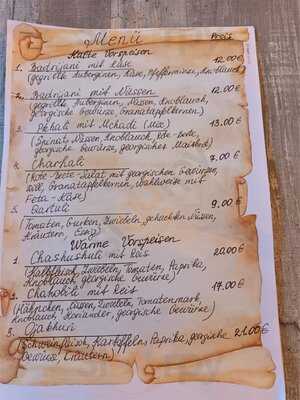 Menü Preis
Kalte Vorspeisen
1. Badrijani mit Käse 12.00€
(gegrillte Auberginen, Käse, Pfefferminze, Knoblauch)
2. Badrijani mit Nüssen 12.00€
(gegrillte Auberginen, Nüssen, Knoblauch,
georgische Gewürze, Granatapfelkernen)
3. Pkhali mit Mchadi (Mix) 13.00€
(Spinat, Nüssen, Knoblauch, Rote-Beete,
georgische Gewürze, georgisches Maisbrot)
4. Charkhali 7.00€
(Rote-Beete-Salat mit georgischen Gewürzen,
Dill, Granatapfelkernen, Wahlweise mit
Feta-Käse)
5. Qartuli 9.00€
(Tomaten, Gurken, Zwiebeln, gehackten Nüssen,
Kräutern, Essig)
Warme Vorspeisen
1. Chashushuli mit Reis 20.00€
(Kalbfleisch, Zwiebeln, Tomaten, Paprika,
Knoblauch, georgische Gewürze)
2. Chakhokhbili mit Reis 17.00€
(Hähnchen, Nüssen, Zwiebeln, Tomatenmark,
Knoblauch, Koriander, georgische Gewürze)
3. Ojakhuri
(Schweinfleisch, Kartoffeln, Paprika, georgische 21.00€
Gewürze, Kräutern)